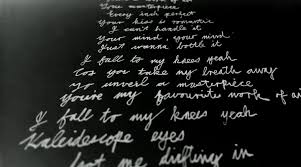 Your masterpiece
Every inch perfect
Your kiss is romantic
I can't handle it
Your mind, your mind
Just wanna bottle it
I fall to my knees yeah
Cos you take my breath away
To unveil a masterpiece
You're my favourite work of a
I fall to my knees yeah
Kaleidoscope eyes
me drifting in